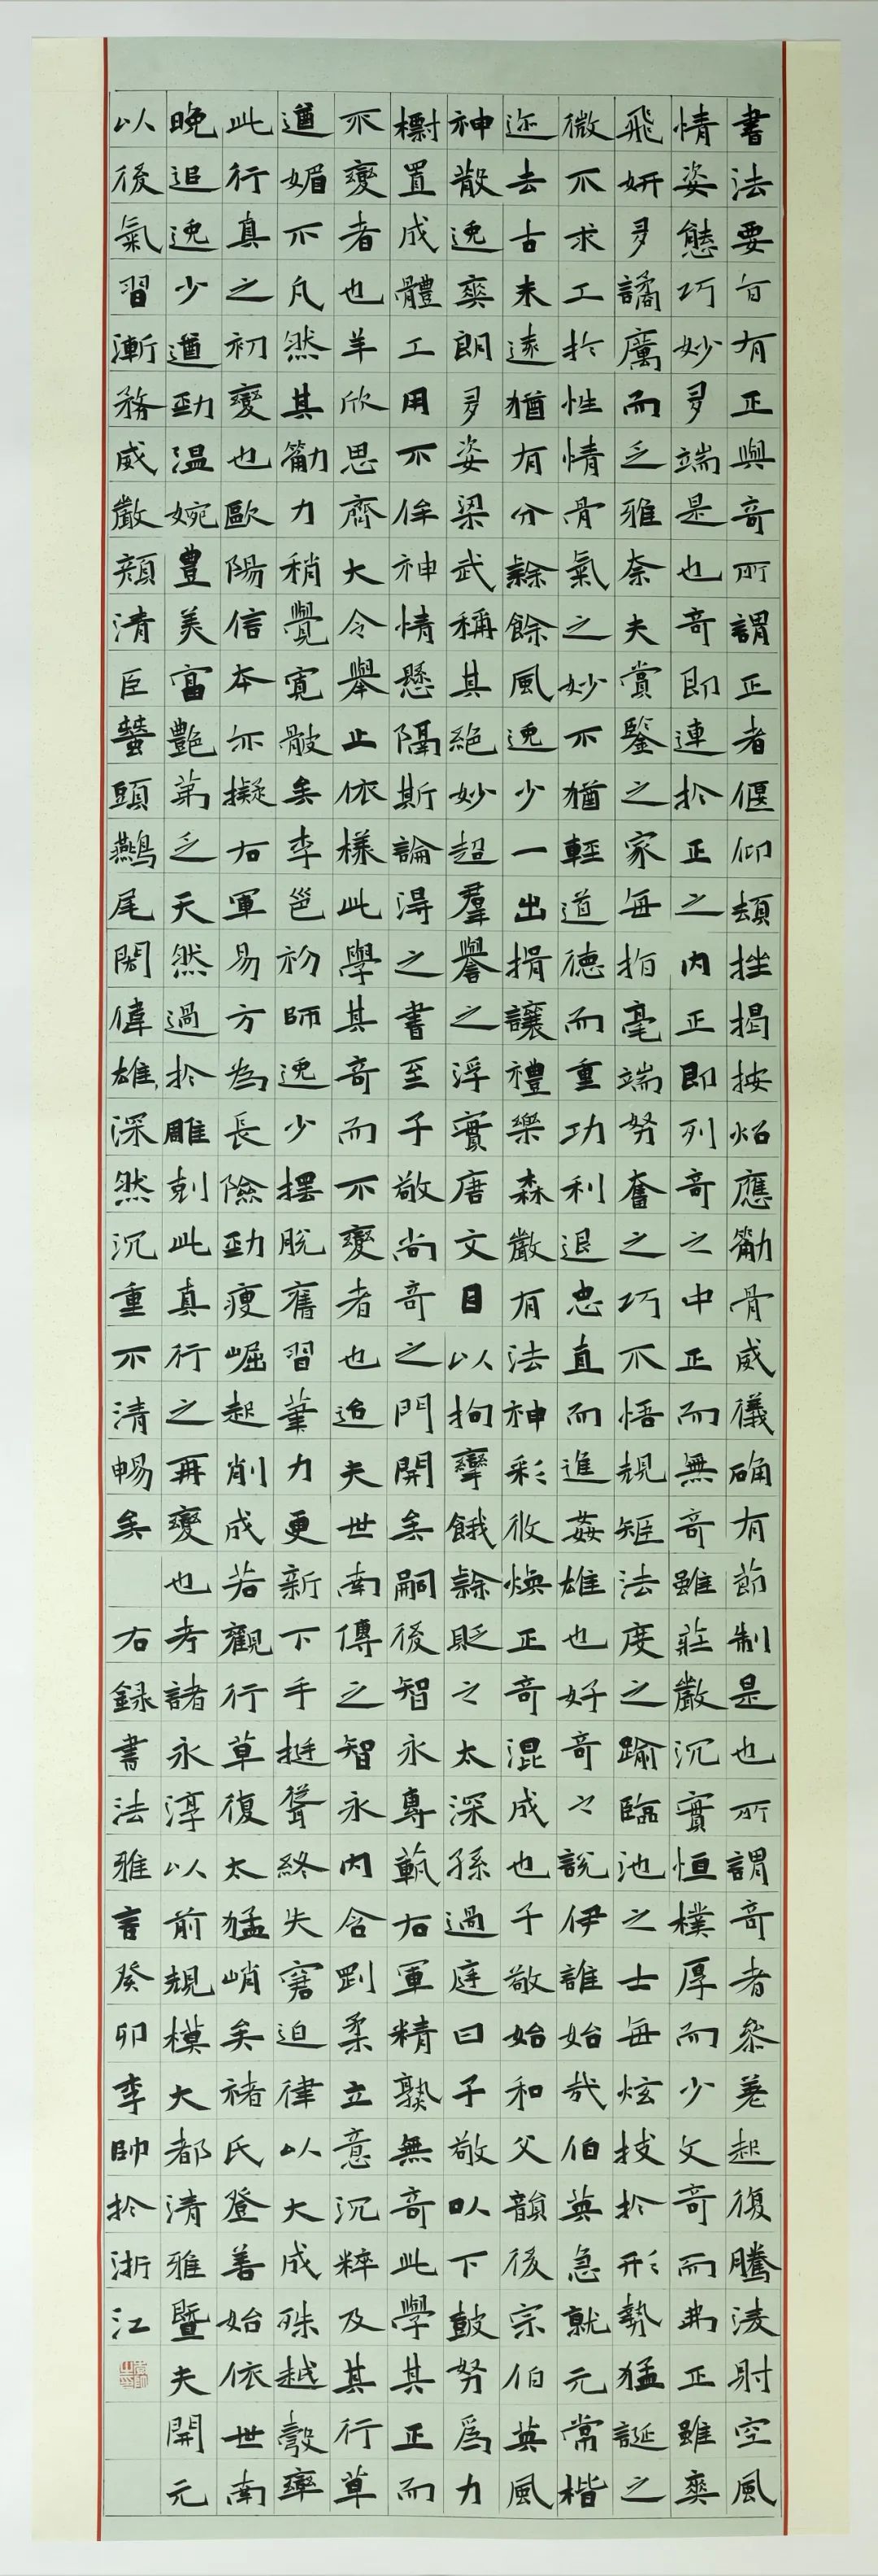 書法要旨有正與奇所謂正者偃仰頓挫揭按炤應觔骨威儀确有節制是也所謂奇者叅差起復騰淩射空風
情姿態巧妙多端是也奇即連扵正之内正即列奇之中正而無奇雖莊嚴沉實恒樸厚而少文奇而弗正雖奕
飛妍多譎厲而乏雅奈夫賞鑒之家每指毫端努奮之巧不悟規矩法度之踰臨池之士每炫技扵形勢猛誕之
微不求工扵性情骨氣之妙不猶輕道德而重功利退忠直而進姦雄也好奇之說伊誰始㢤伯英急就元常楷
迹去古未遠猶有分𨽻餘風逸少一出揖讓禮樂森嚴有法神彩攸煥正奇混成也子敬始和父韻後宗伯英風
神散逸爽朗多姿梁武稱其絕妙超羣譽之浮實唐文目以拘攣餓𨽻貶之太深孫過庭曰子敬㠯下鼓努爲力
標置成體工用不侔神情懸隔斯論淂之書至子敬尚奇之門開矣嗣後智永專蓺右軍精熟無奇此學其正而
不變者也羊欣思齊大令舉止依樣此學其奇而不變者也迨夫世南傳之智永内含剛柔立意沉粹及其行草
遒媚不凡然其觔力稍覺寬骳矣李邕初師逸少擺脫舊習筆力更新下手挺聳終失窘迫律以大成殊越彀率
此行真之初變也歐陽信本亦擬右軍易方為長險勁瘦崛起削成若觀行草復太猛峭矣褚氏登善始依世南
晚追逸少遒勁温婉豊美富艷第乏天然過扵雕刻此真行之再變也考諸永淳以前規模大都清雅暨夫開元
以後氣習漸務威嚴顔清臣蠶頭鷰尾閎偉雄深然沉重不清暢矣 右録書法雅言癸卯李帥扵浙江